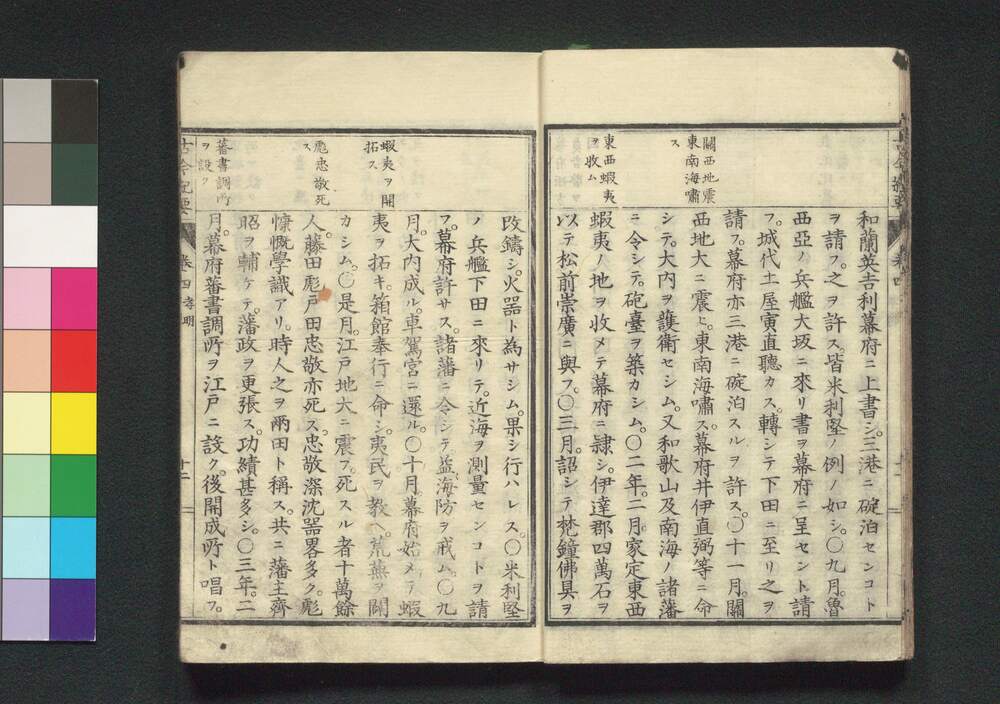 關西地震
東南海嘯
ス
東西蝦夷
ヲ收ム
和蘭英吉利幕府ニ上書シ。三港ニ碇泊センコト
ヲ請フ。之ヲ許ス。皆米利堅ノ例ノ如シ。〇九月。魯
西亞ノ兵艦大坂ニ來リ書ヲ幕府ニ呈セント請
フ。城代土屋寅直聽カス。轉シテ下田ニ至リ之ヲ
請フ。幕府亦三港ニ碇泊スルヲ許ス。〇十一月。關
西地大ニ震ヒ。東南海嘯ス。幕府井伊直弼等ニ命
シテ。大内ヲ護衛セシム。又和歌山及南海ノ諸藩
ニ令シテ。砲臺ヲ築カシム。〇二年。二月。家定東西
蝦夷ノ地ヲ收メテ幕府ニ隷シ。伊達郡四萬石ヲ
以テ松前崇廣ニ與フ。〇三月。詔シテ梵鐘佛具ヲ
蝦夷ヲ開
拓ス
彪忠敬死
ス
蕃書調所
ヲ設ク
改鑄シ。火器ト為サシム。果シ行ハレス。〇米利堅
ノ兵艦下田ニ來リテ。近海ヲ測量センコトヲ請
フ。幕府許サス。諸藩ニ令シテ益海防ヲ戒ム。〇九
月。大内成ル。車駕宮ニ還ル。〇十月。幕府始メテ蝦
夷ヲ拓キ。箱館奉行ニ命シ夷民ヲ教ヘ。荒蕪ヲ闢
カシム。〇是月。江戸地大ニ震フ。死スル者十萬餘
人。藤田彪戸田忠敬亦死ス。忠敬深沈器畧多ク。彪
慷慨學識アリ。時人之ヲ兩田ト稱ス。共ニ藩主齊
昭ヲ輔ケテ。藩政ヲ更張ス。功績甚多シ。〇三年。二
月。幕府蕃書調所ヲ江戸ニ設ク。後開成所ト唱フ。
古今紀要
卷四 孝明
十二